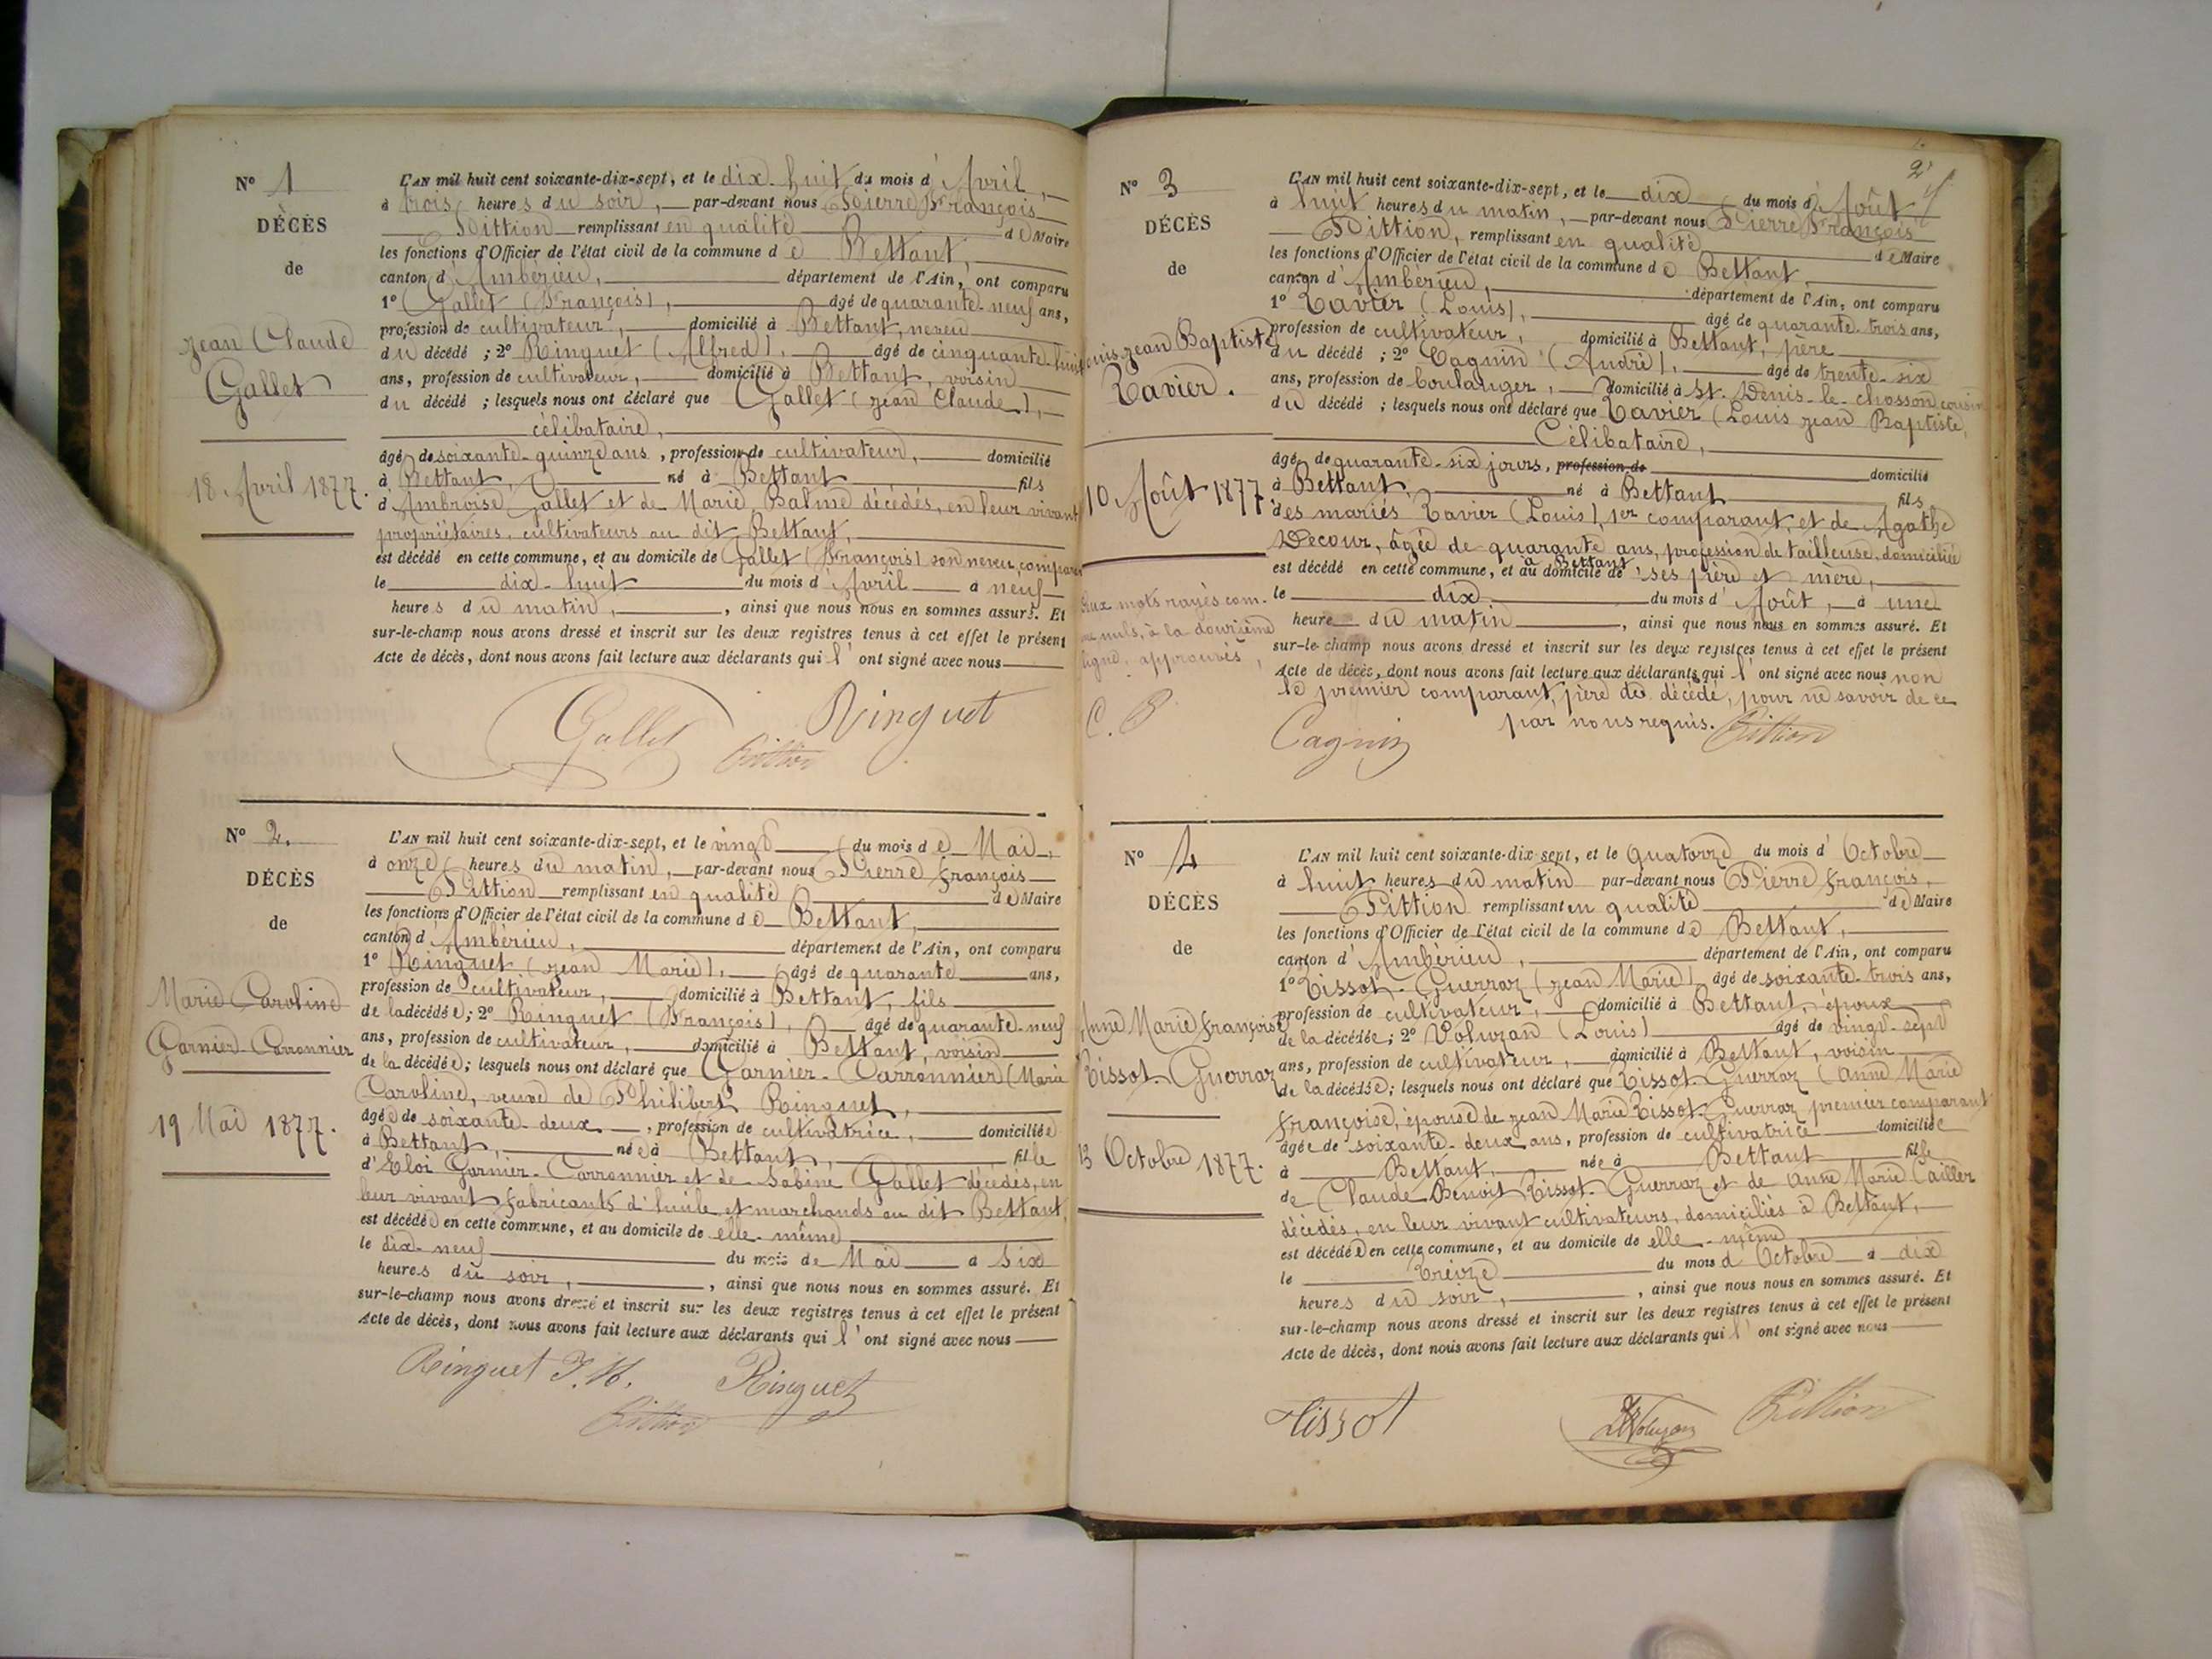 N° 1
DÉCÈS
de
Jean Claude
Gallet
18 Avril 1877.
L'AN mil huit cent soixante-dix-sept, et le dix-huit du mois d'Avril,
à trois heures du soir, par-devant nous Pierre François
Pittion remplissant en qualité de Maire
les fonctions d'Officier de l'état civil de la commune de Bettant,
canton d'Ambérieu, département de l'Ain, ont comparu
1° Gallet (François), âgé de quarante-neuf ans,
profession de cultivateur, domicilié à Bettant, neveu
du décédé ; 2° Ringuet (Alfred), âgé de cinquante-huit
ans, profession de cultivateur, domicilié à Bettant, voisin
du décédé ; lesquels nous ont déclaré que Gallet (Jean Claude),
célibataire,
âgé de soixante-quinze ans, profession de cultivateur, domicilié
à Bettant, né à Bettant fils
d'Ambroise Gallet et de Marie Balme décédés, en leur vivant
propriétaires, cultivateurs au dit Bettant,
est décédé en cette commune, et au domicile de Gallet (François) son neveu, comparant
le dix-huit du mois d'Avril à neuf
heures du matin, ainsi que nous nous en sommes assuré. Et
sur-le-champ nous avons dressé et inscrit sur les deux registres tenus à cet effet le présent
Acte de décès, dont nous avons fait lecture aux déclarants qui l'ont signé avec nous
Gallet Pittion Ringuet
N° 2.
DÉCÈS
de
Marie Caroline
Garnier-Carronnier
19 Mai 1877.
L'AN mil huit cent soixante-dix-sept, et le vingt du mois de Mai,
à onze heures du matin, par-devant nous Pierre François
Pittion remplissant en qualité de Maire
les fonctions d'Officier de l'état civil de la commune de Bettant,
canton d'Ambérieu, département de l'Ain, ont comparu
1° Ringuet (Jean Marie), âgé de quarante ans,
profession de cultivateur, domicilié à Bettant, fils
de la décédée ; 2° Ringuet (François), âgé de quarante-neuf
ans, profession de cultivateur, domicilié à Bettant, voisin
de la décédée ; lesquels nous ont déclaré que Garnier-Carronnier (Marie
Caroline, veuve de Philibert Ringuet,
âgée de soixante-deux, profession de cultivatrice, domiciliée
à Bettant, née à Bettant, fille
d'Eloi Garnier-Carronnier et de Sabine Gallet décédés, en
leur vivant fabricants d'huile et marchands au dit Bettant,
est décédée en cette commune, et au domicile de elle-même
le dix-neuf du mois de Mai à six
heures du soir, ainsi que nous nous en sommes assuré. Et
sur-le-champ nous avons dressé et inscrit sur les deux registres tenus à cet effet le présent
Acte de décès, dont nous avons fait lecture aux déclarants qui l'ont signé avec nous
Ringuet J. M. Ringuet
Pittion
2
N° 3
DÉCÈS
de
Louis Jean Baptiste
Tavier.
10 Août 1877
Deux mots rayés com-
me nuls, à la douzième
ligne, approuvés,
C. P.
L'AN mil huit cent soixante-dix-sept, et le dix du mois d'Août
à huit heures du matin, par-devant nous Pierre François
Pittion, remplissant en qualité de Maire
les fonctions d'Officier de l'état civil de la commune de Bettant,
canton d'Ambérieu, département de l'Ain, ont comparu
1° Tavier (Louis), âgé de quarante-trois ans,
profession de cultivateur, domicilié à Bettant, père
du décédé ; 2° Cagnin (André), âgé de trente-six
ans, profession de boulanger, domicilié à St. Denis-le-chosson, cousin
du décédé ; lesquels nous ont déclaré que Tavier (Louis Jean Baptiste,
Célibataire,
âgé de quarante-six jours, profession de domicilié
à Bettant, né à Bettant fils
des mariés Tavier (Louis), 1er comparant, et de Agathe
Decour, âgée de quarante ans, profession de tailleuse, domiciliée
à Bettant
est décédé en cette commune, et au domicile de ses père et mère,
le dix du mois d'Août, à une
heure du matin, ainsi que nous nous en sommes assuré. Et
sur-le-champ nous avons dressé et inscrit sur les deux registres tenus à cet effet le présent
Acte de décès, dont nous avons fait lecture aux déclarants qui l'ont signé avec nous non
le premier comparant, père du décédé, pour ne savoir de ce
par nous requis.
Cagnin Pittion
N° 4
DÉCÈS
de
Anne Marie Françoise
Tissot-Guerraz
13 Octobre 1877.
L'AN mil huit cent soixante-dix-sept, et le Quatorze du mois d'Octobre
à huit heures du matin par-devant nous Pierre François,
Pittion remplissant en qualité de Maire
les fonctions d'Officier de l'état civil de la commune de Bettant,
canton d'Ambérieu, département de l'Ain, ont comparu
1° Tissot-Guerraz (Jean Marie) âgé de soixante-trois ans,
profession de cultivateur, domicilié à Bettant, époux
de la décédée ; 2° Voluzan (Louis) âgé de vingt-sept
ans, profession de cultivateur, domicilié à Bettant, voisin
de la décédée ; lesquels nous ont déclaré que Tissot-Guerraz (Anne Marie
Françoise, épouse de Jean Marie Tissot-Guerraz premier comparant
âgée de soixante-deux ans, profession de cultivatrice domiciliée
à Bettant, née à Bettant fille
de Claude Benoit Tissot-Guerraz et de Anne Marie Cailler
décédés, en leur vivant cultivateurs, domiciliés à Bettant,
est décédée en cette commune, et au domicile de elle-même
le treize du mois d'Octobre à dix
heures du soir, ainsi que nous nous en sommes assuré. Et
sur-le-champ nous avons dressé et inscrit sur les deux registres tenus à cet effet le présent
Acte de décès, dont nous avons fait lecture aux déclarants qui l'ont signé avec nous
Tissot Voluzan Pittion